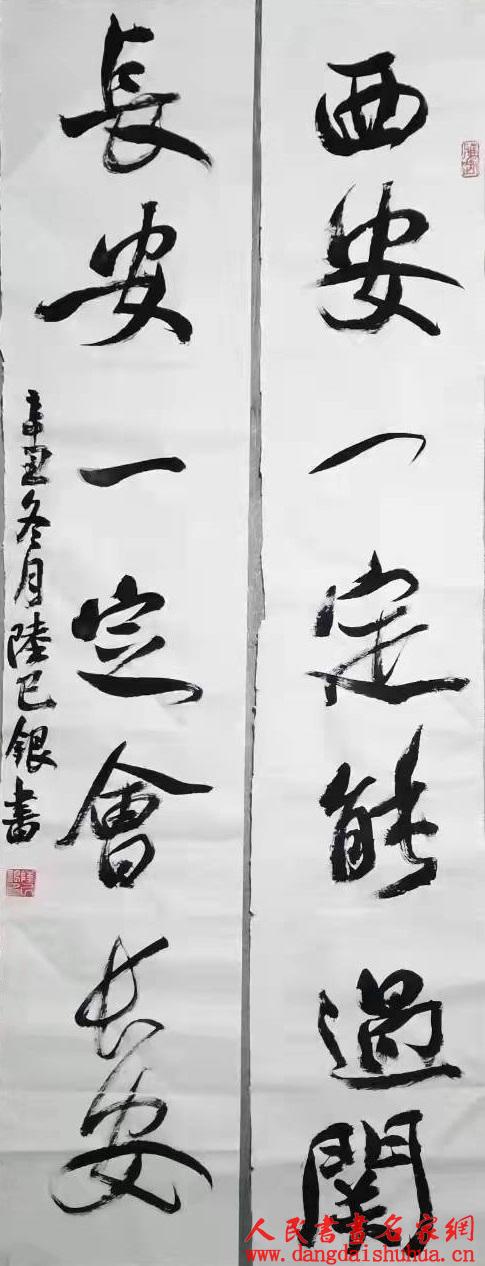 西安一定能過関
長安一定會长安
辛丑冬月陸已銀書
人民書畫名家網
www.dangdaishuhua.cn